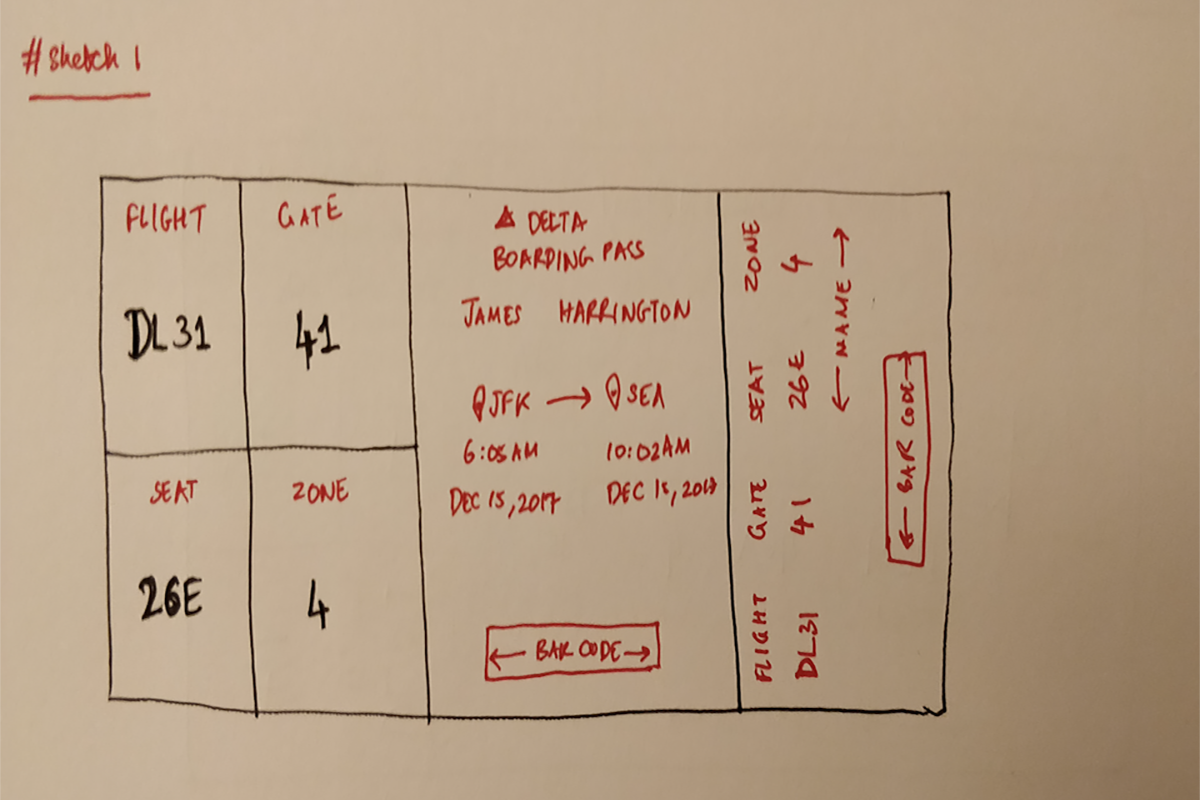 #Sketch 1
FLIGHT
DL31
GATE
41
SEAT
26E
ZONE
4
DELTA
BOARDING PASS
JAMES HARRINGTON
JFK → SEA
6:05AM 10:02AM
DEC 15, 2017 DEC 15, 2017
← BAR CODE →
FLIGHT GATE SEAT ZONE
DL31 41 26E 4
← NAME →
← BAR CODE →